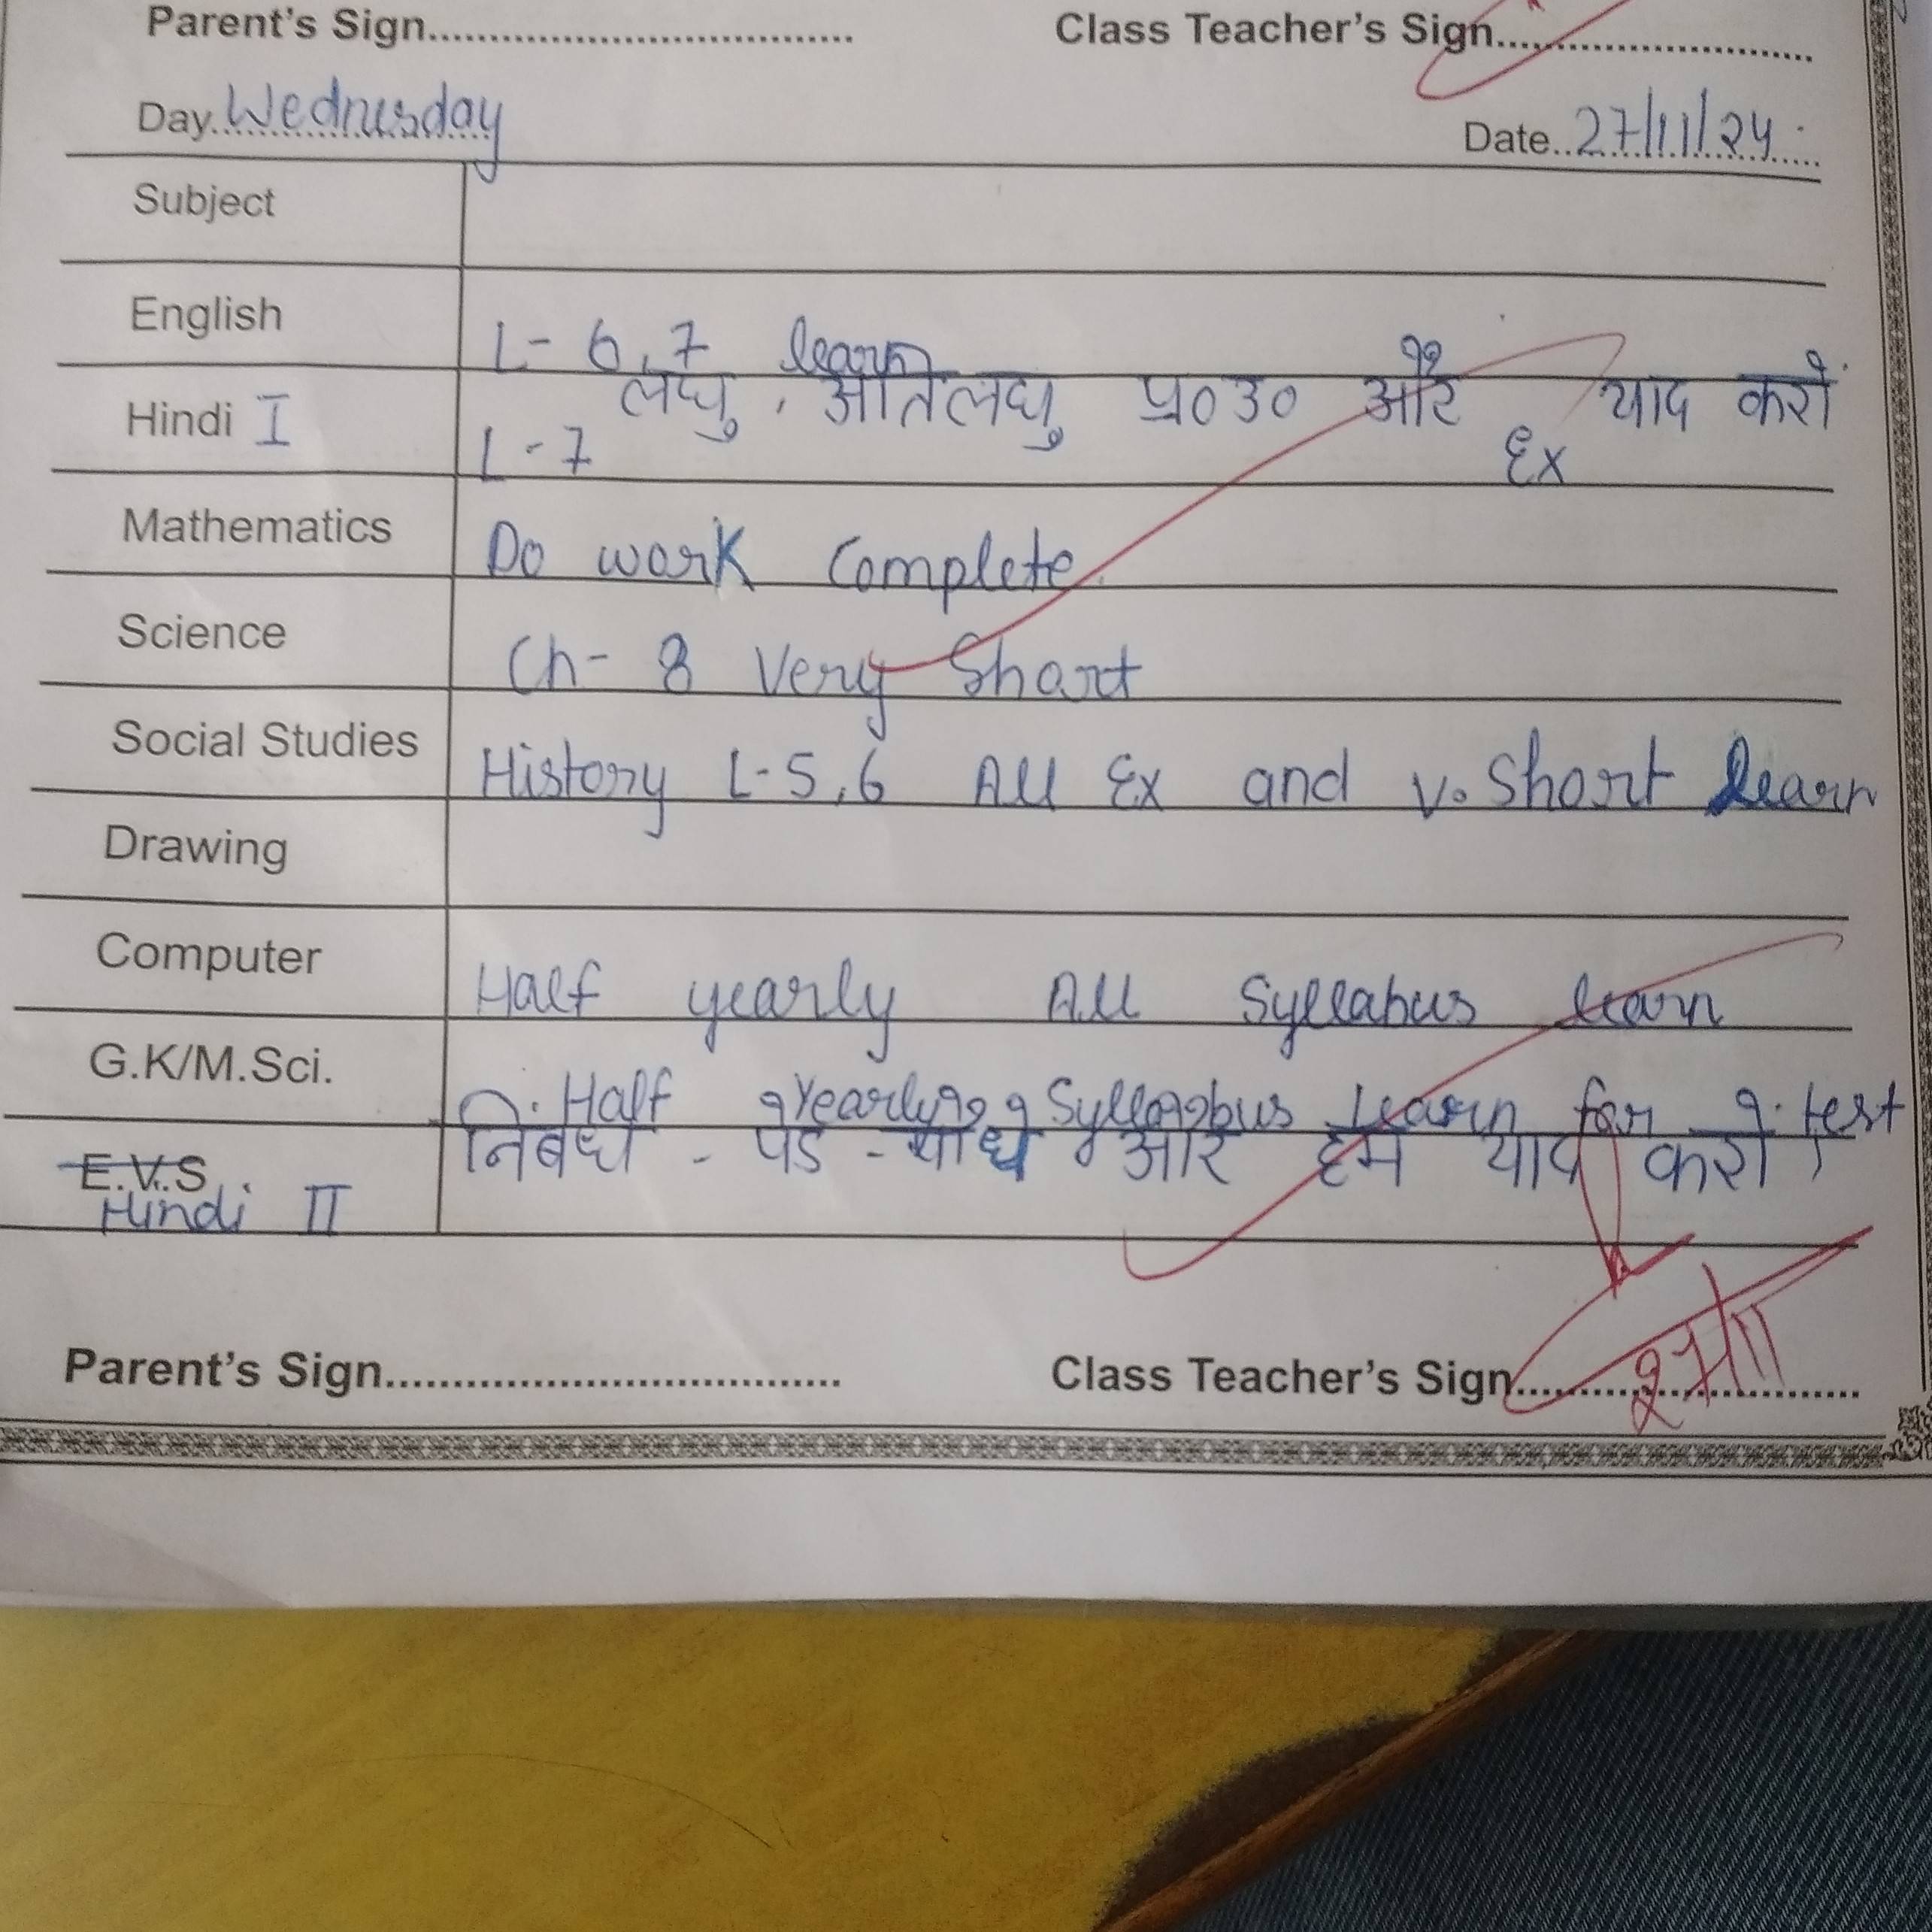 Parent's Sign.................................... Class Teacher's Sign............................
Day Wednesday Date 27/11/24
Subject
English L- 6,7 learn
Hindi I L-7 लघु, अतिलघु प्र०उ० और Ex याद करों
Mathematics Do work Complete.
Science Ch- 8 Very Short
Social Studies History L-5,6 All Ex and v. Short learn
Drawing
Computer Half yearly All Syllabus learn
G.K/M.Sci. Half Yearly Syllabus learn for test
E.V.S. Hindi II निबंध - पेड़ - पौधे और हम याद करो।
Parent's Sign.................................... Class Teacher's Sign............................